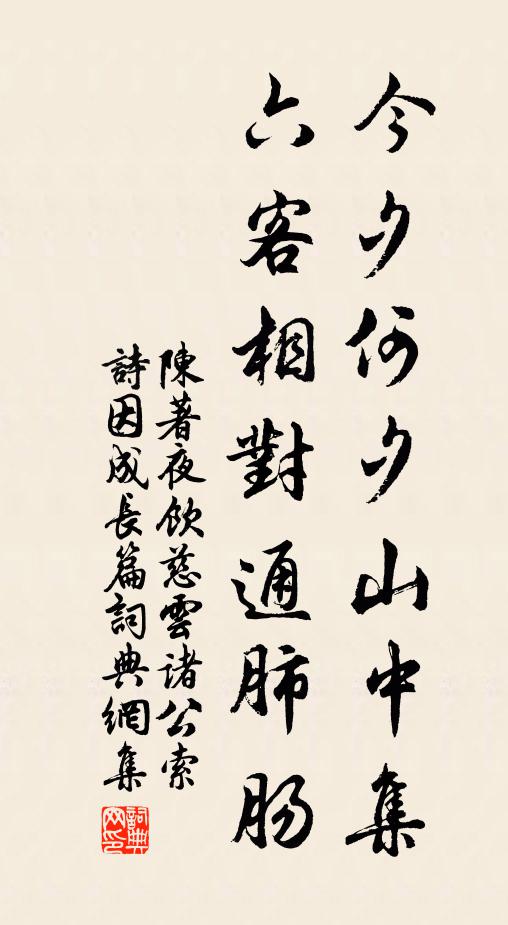 今夕何夕山中集
六客相對通肺肠
陳著夜飲慈雲诸公索
詩因成長篇詞典網集
詞典网印